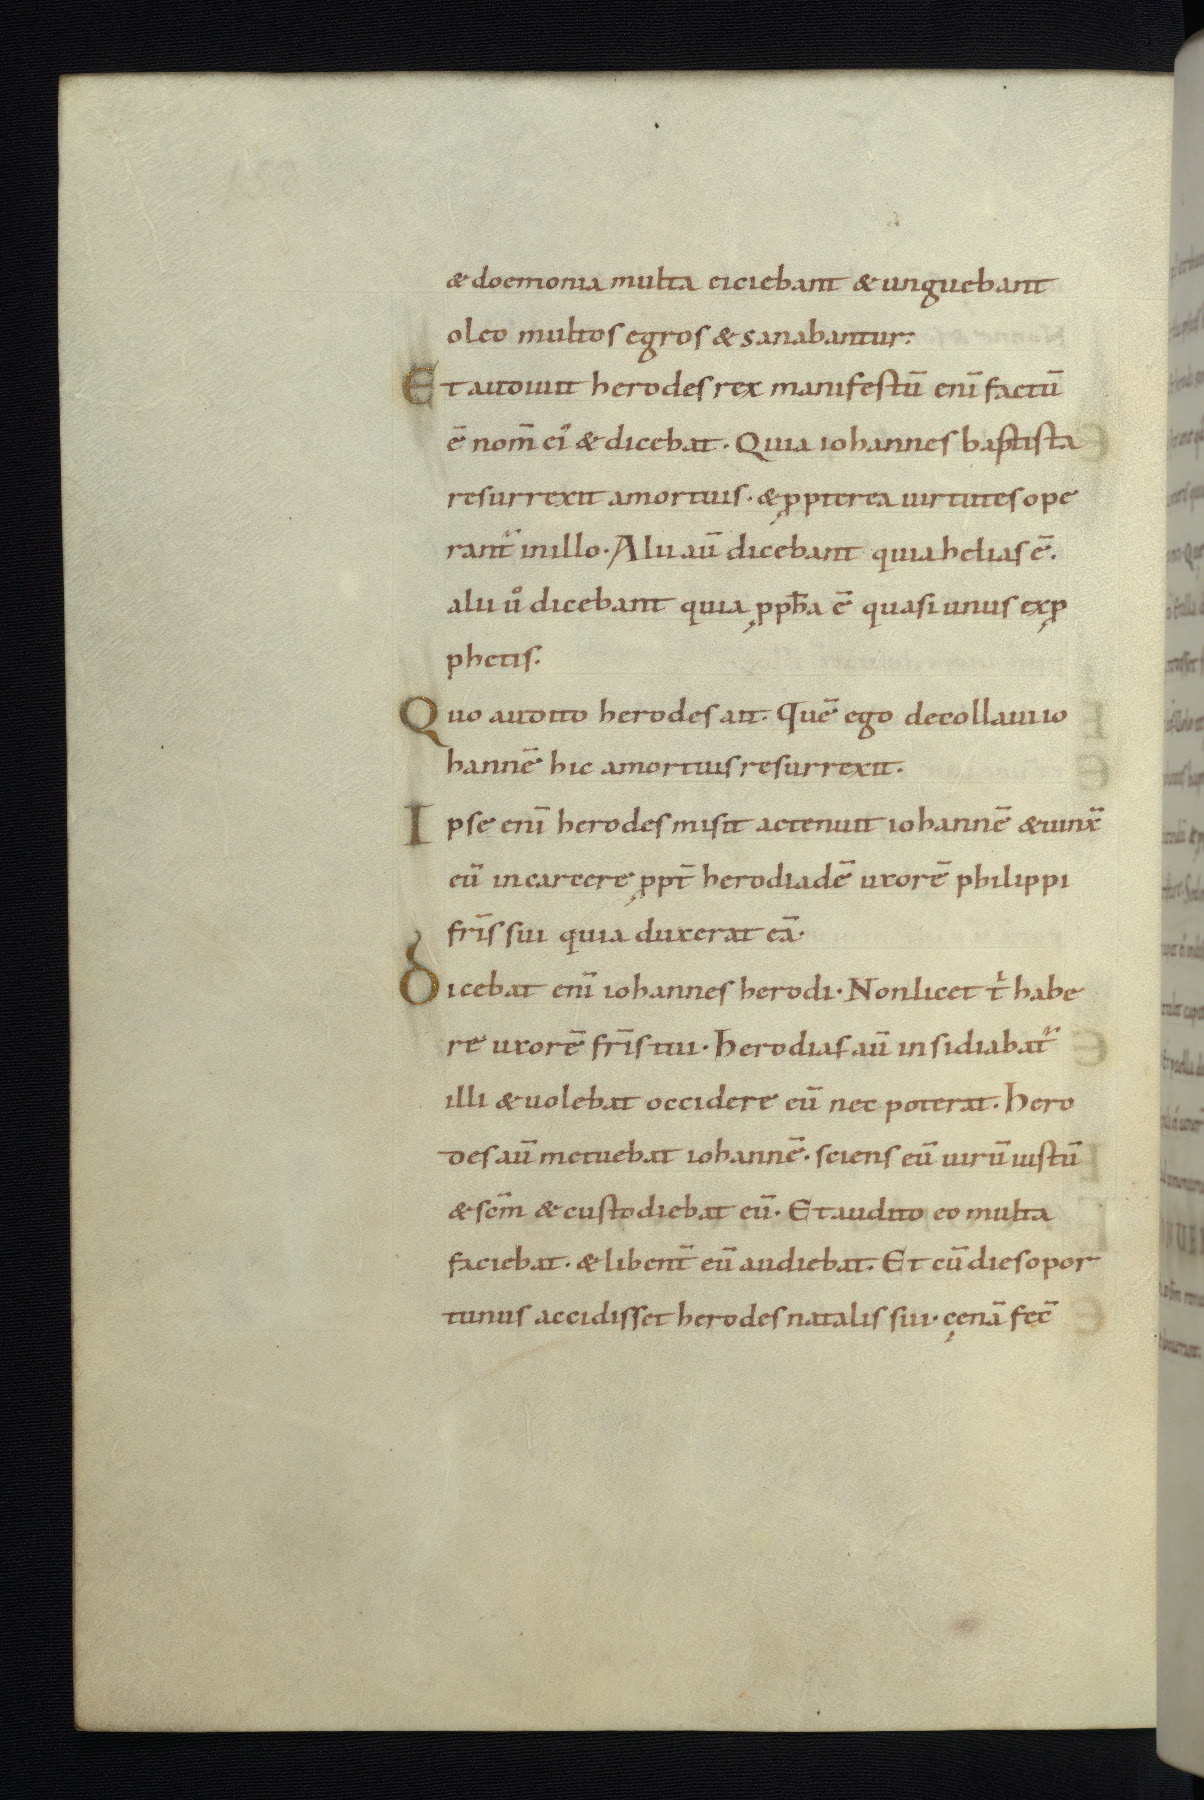 & doemonia multa eiciebant & unguebant
oleo multos egros & sanabantur.
Et audiuit herodes rex manifestū enī factū
ē nom̄ ei᾽ & dicebat. Quia iohannes baptista
resurrexit amortuis. & ꝓpterea uirtutes ope
rant᷑ inillo. Alii aū dicebant quia helias ē.
alii ů dicebant quia ꝓph̄a ē quasi unus exꝓ
phetis.
Quo audito herodes ait. Quē ego decollaui io
hannē hic amortuis resurrexit.
Ipse enī herodes misit actenuit iohannē & uinx̄
eū incarcere ꝓpt̄ herodiadē uxorē philippi
fr̄is sui quia duxerat eā.
Dicebat enī iohannes herodi. Nonlicet t᷑ habe
re uxorē fr̄is tui. Herodias aū insidiabat᷑
illi & uolebat occidere eū nec poterat. Hero
des aū metuebat iohannē. sciens eū uirū iustū
& scm̄ & custodiebat eū. Et audito eo multa
faciebat. & libent̄ eū audiebat. Et cū dies opor
tunus accidisset herodes natalis sui. cęnā fec̄